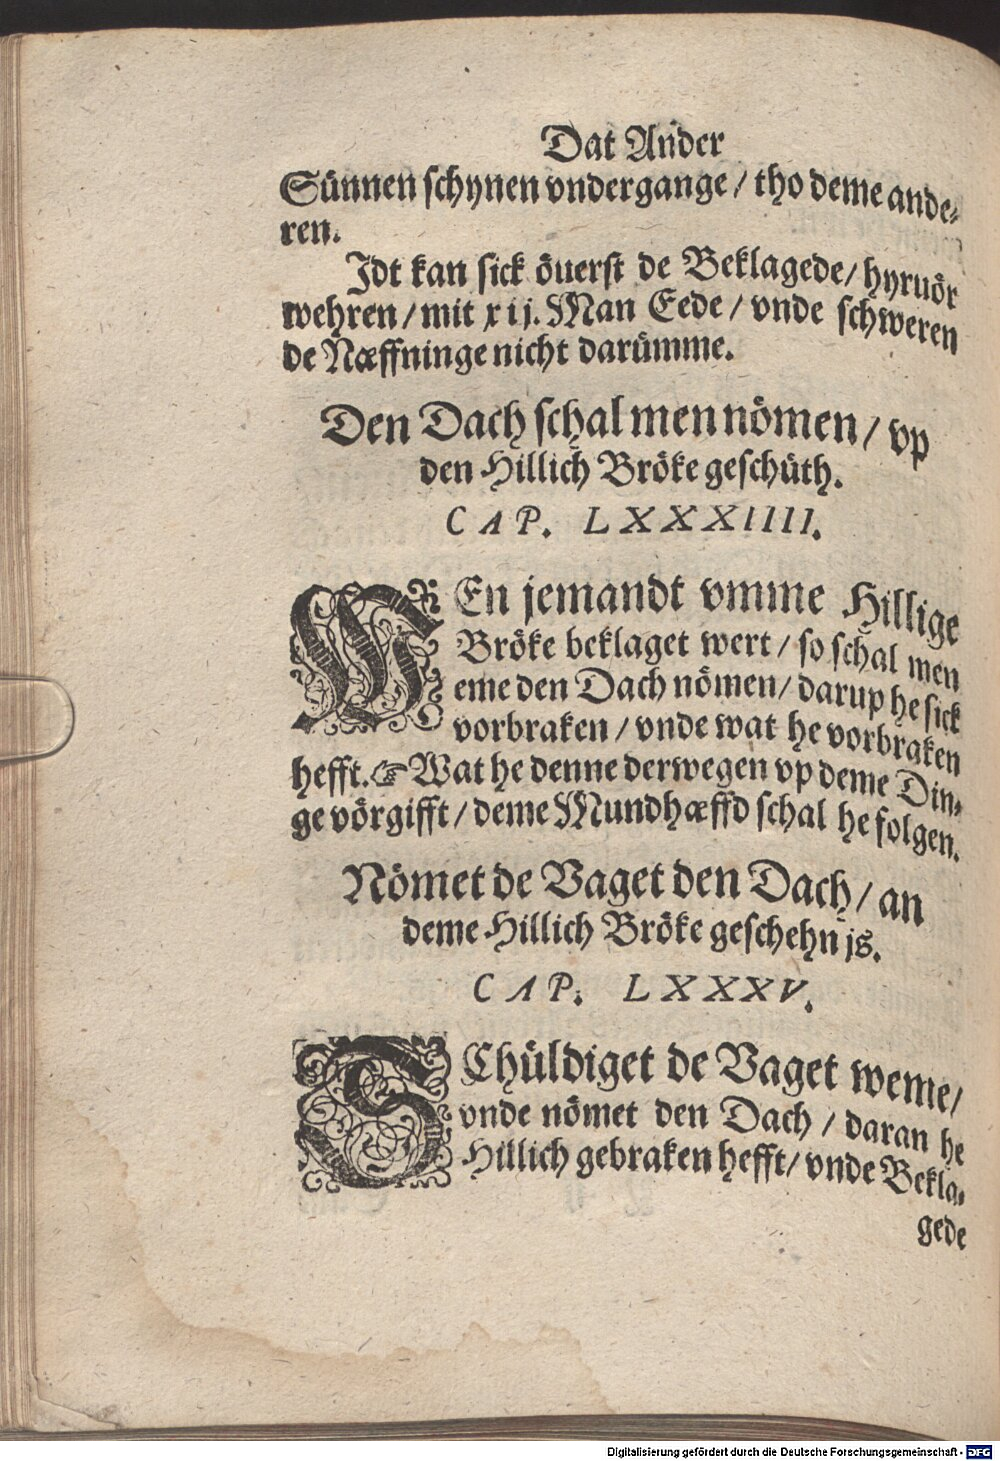 Dat Ander
Sünnen schynen vndergange / tho deme ande-
ren.
Jdt kan sick öuerst de Beklagede / hyruör
wehren / mit xij. Man Eede / vnde schweren
de Næffninge nicht darümme.
Den Dach schal men nömen / vp
den Hillich Bröke geschüth.
CAP. LXXXIIII.
WEn jemandt vmme Hillige
Bröke beklaget wert / so schal men
eme den Dach nömen / darup he sick
vorbraken / vnde wat he vorbraken
hefft. ☞ Wat he denne derwegen vp deme Din-
ge vörgifft / deme Mundhæffd schal he folgen.
Nömet de Vaget den Dach / an
deme Hillich Bröke geschehn js.
CAP. LXXXV.
SChüldiget de Vaget weme /
vnde nömet den Dach / daran he
Hillich gebraken hefft / vnde Bekla-
gede
Digitalisierung gefördert durch die Deutsche Forschungsgemeinschaft - DFG